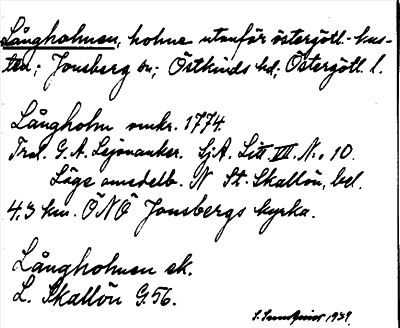 Långholmen, holme utanför östergötl. kus-
ten; Jonsberg sn; Östkinds hd; Östergötl. l.
Långholm omkr. 1774.
Trol. G. A. Lejonanker. SjA. Litt VII. No 10.
Läge omedelb. N St. Skallön, bel.
4.3 km. ÖNÖ Jonsbergs kyrka.
Långholmen ek.
L. Skallön G. 56.
1939.